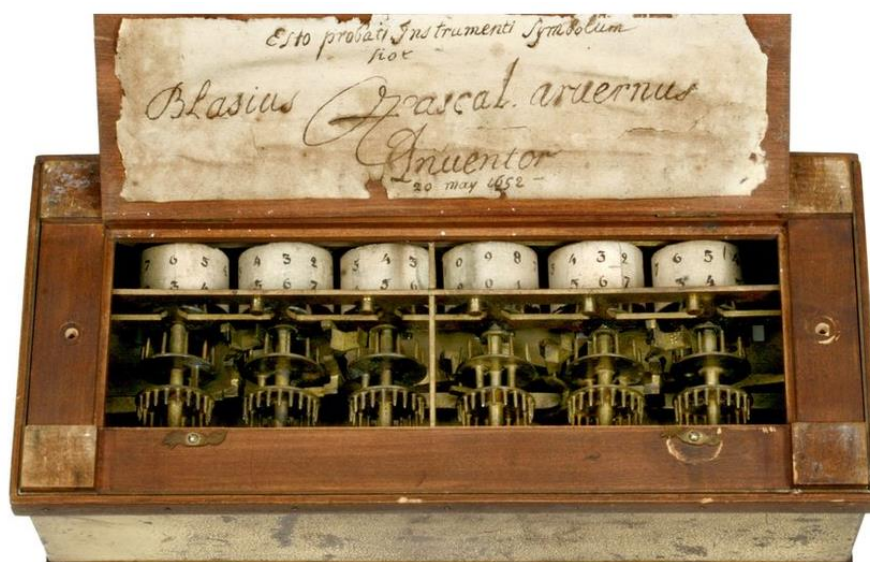 Esto probati Instrumenti Symbolum
hoc
Blasius Pascal. aruernus
Inuentor
20 may 1652 -
7 6 5 4 3 2 5 4 3 0 9 8 4 3 2 7 6 5
3 4 5 6 7 5 6 0 1 5 6 7 3 4